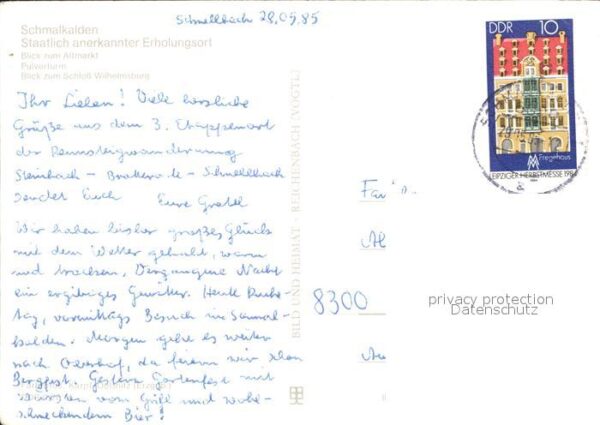 Schnellbach 28.05.85
Schmalkalden
Staatlich anerkannter Erholungsort
Blick zum Altmarkt
Pulverturm
Blick zum Schloß Wilhelmsburg
Ihr Lieben! Viele herzliche
Grüße aus dem 3. Etappenort
der Rennsteigwanderung
Steinbach - Brotterode - Schnellbach
sendet Euch Eure Gretel
Wir haben bisher großes Glück
mit dem Wetter gehabt, warm
und trocken. Vergangene Nacht
ein ergibiges Gewitter. Heute Ruhe-
tag, vormittags Besuch in Schmal-
kalden. Morgen gehe es weiter
nach Oberhof, da feiern wir schon
Bergfest. Gestern Gartenfest mit
Würsten vom Grill und wohl-
schmeckendem Bier!
BILD UND HEIMAT REICHENBACH
DDR 10
Fregehaus
MM
LEIPZIGER HERBSTMESSE 198
Fam
8300
privacy protection
Datenschutz